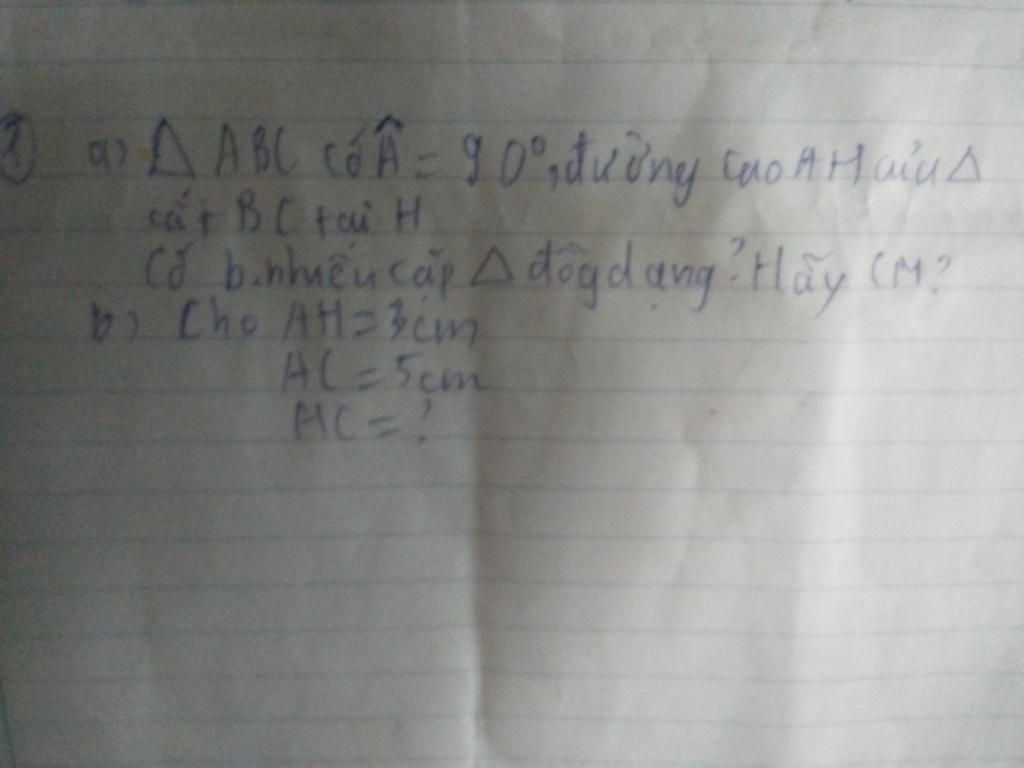 ① a) △ ABC có Â = 90°, đường cao AH của △
cắt BC tại H
Có b.nhiêu cặp △ đồg dạng? Hãy CM?
b) Cho AH = 3cm
AC = 5cm
HC = ?